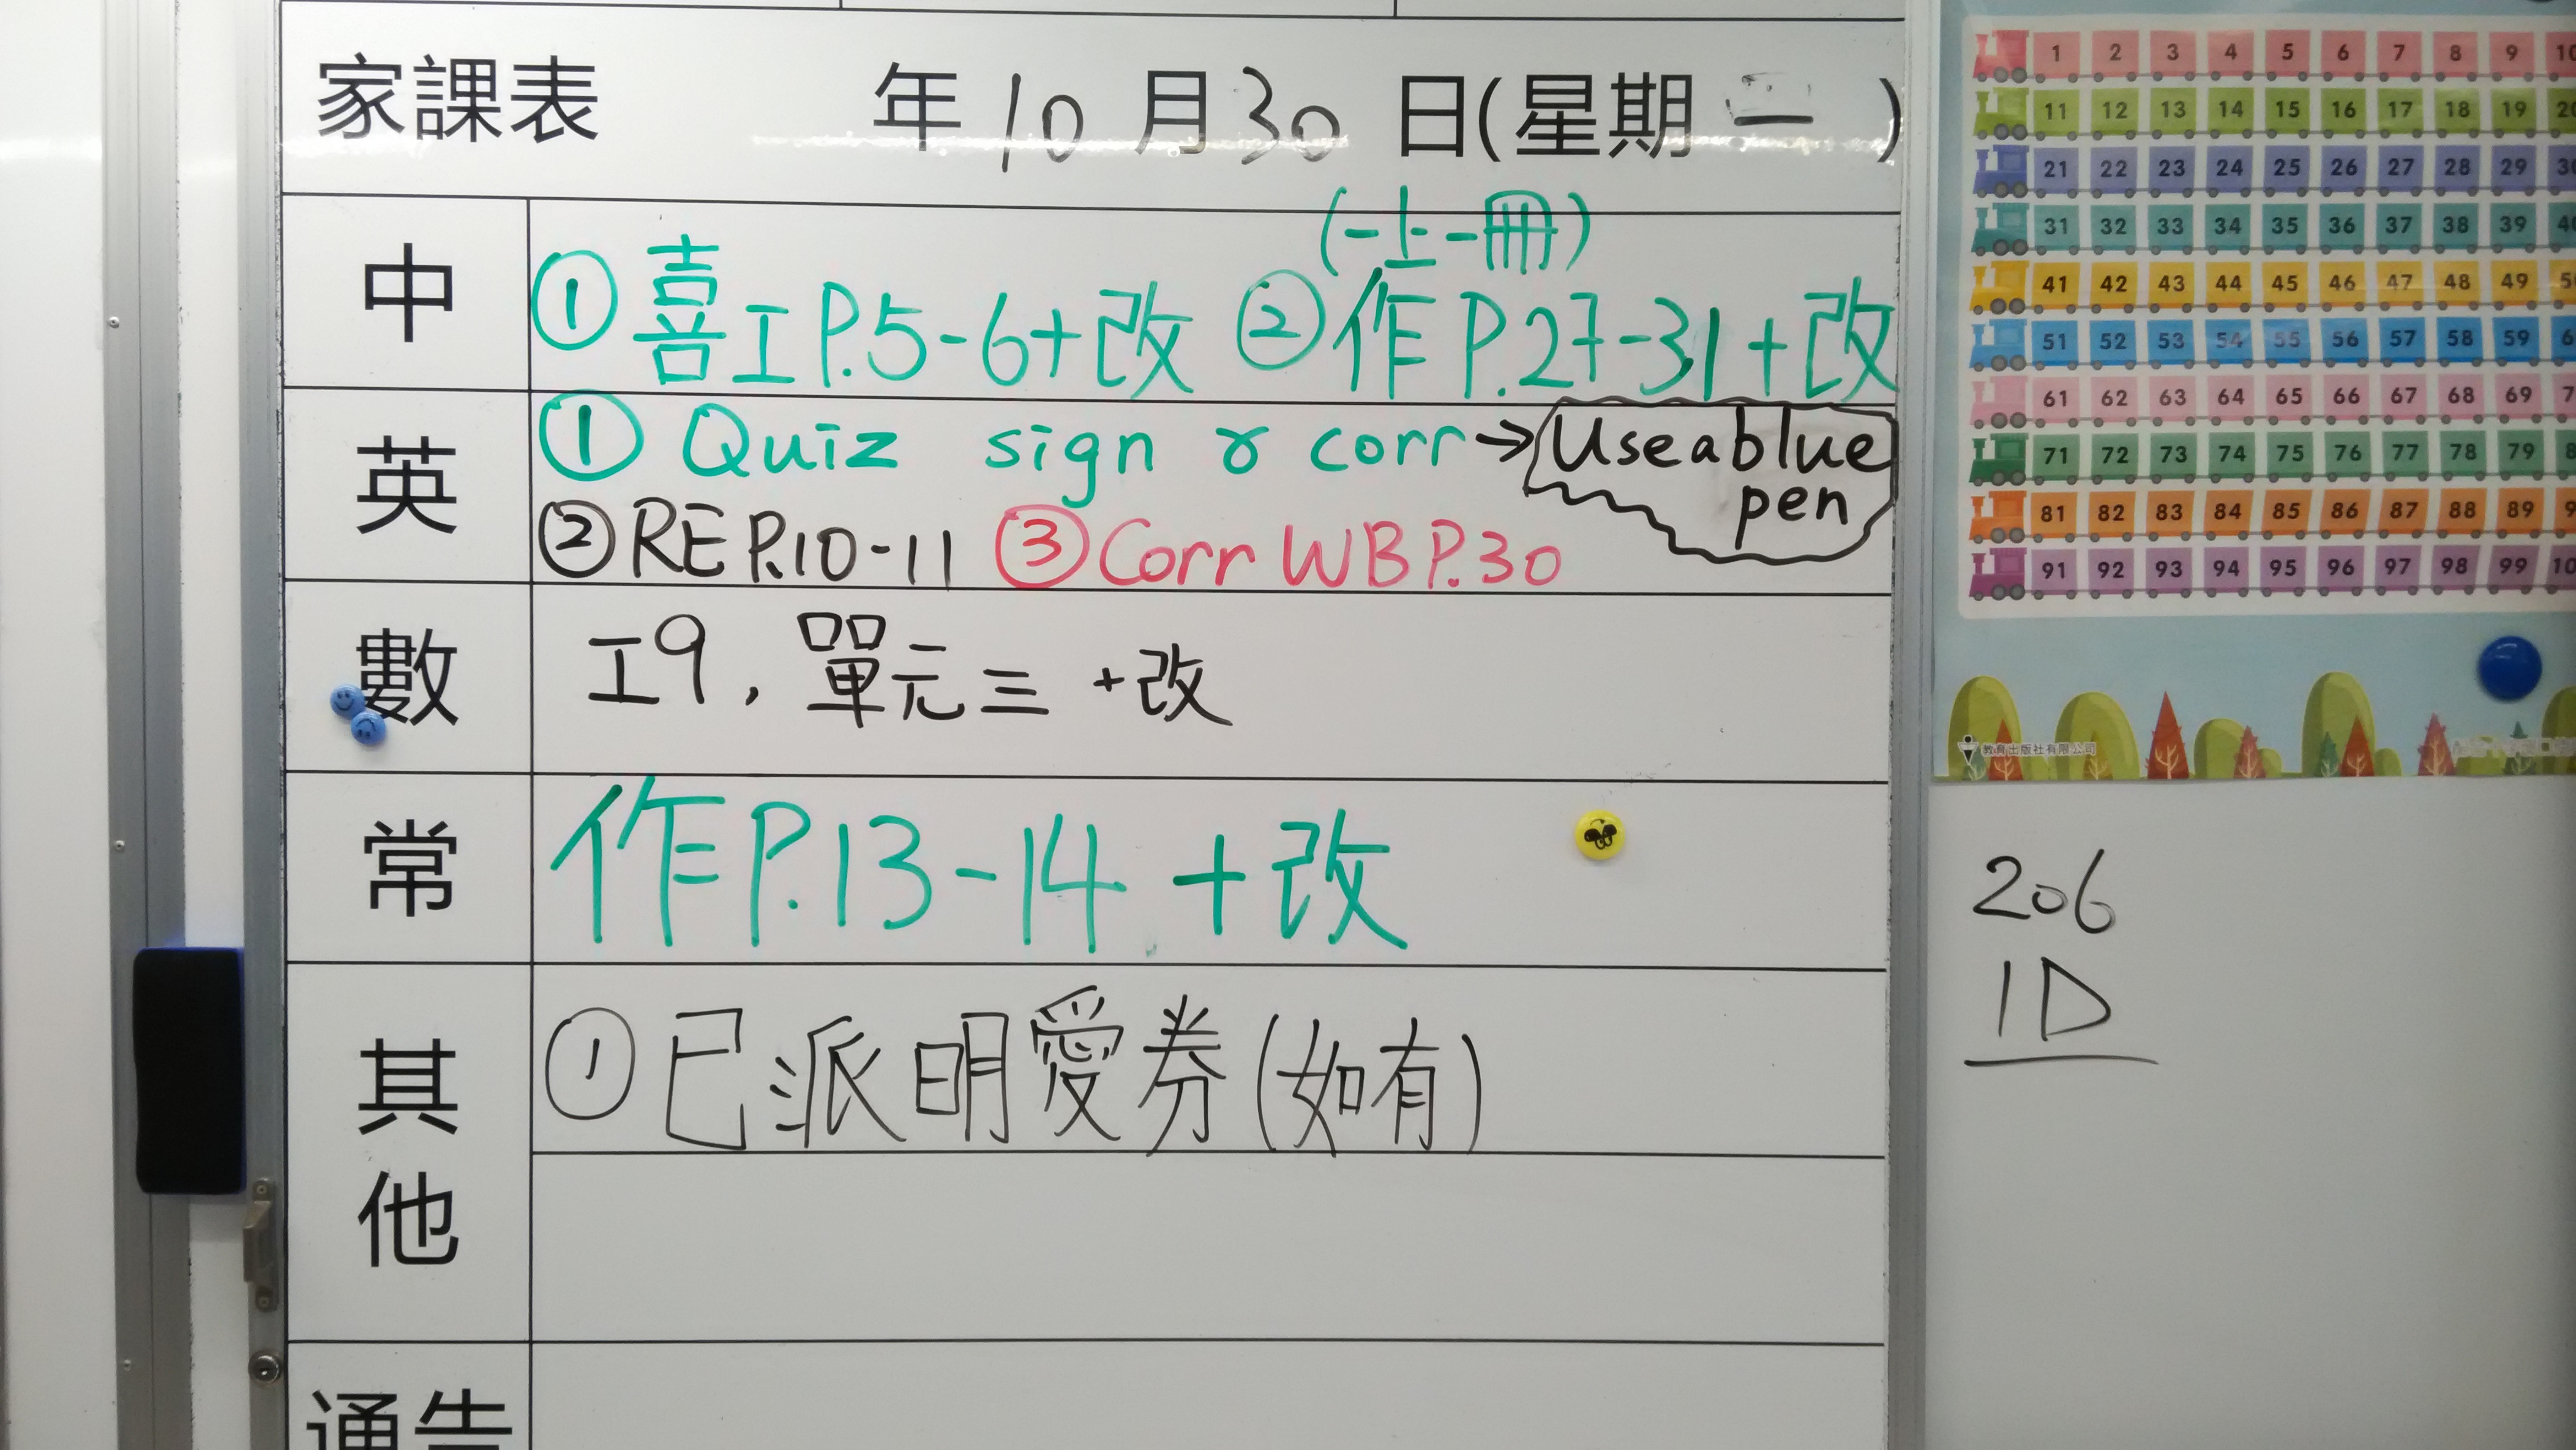 家課表 年 10 月 30 日(星期 一 )
中
(一上一冊)
① 喜工P.5-6+改 ②作P.27-31+改
英
① Quiz sign & corr → Use a blue
pen
② RE P.10-11 ③ Corr WB P.30
數
工9, 單元三 +改
常
作P.13-14 +改
其他
① 已派明愛券(如有)
通告
1 2 3 4 5 6 7 8 9 10
11 12 13 14 15 16 17 18 19
21 22 23 24 25 26 27 28 29
31 32 33 34 35 36 37 38 39
41 42 43 44 45 46 47 48 49
51 52 53 54 55 56 57 58 59
61 62 63 64 65 66 67 68 69
71 72 73 74 75 76 77 78 79
81 82 83 84 85 86 87 88 89
91 92 93 94 95 96 97 98 99
教育出版社有限公司
206
1D